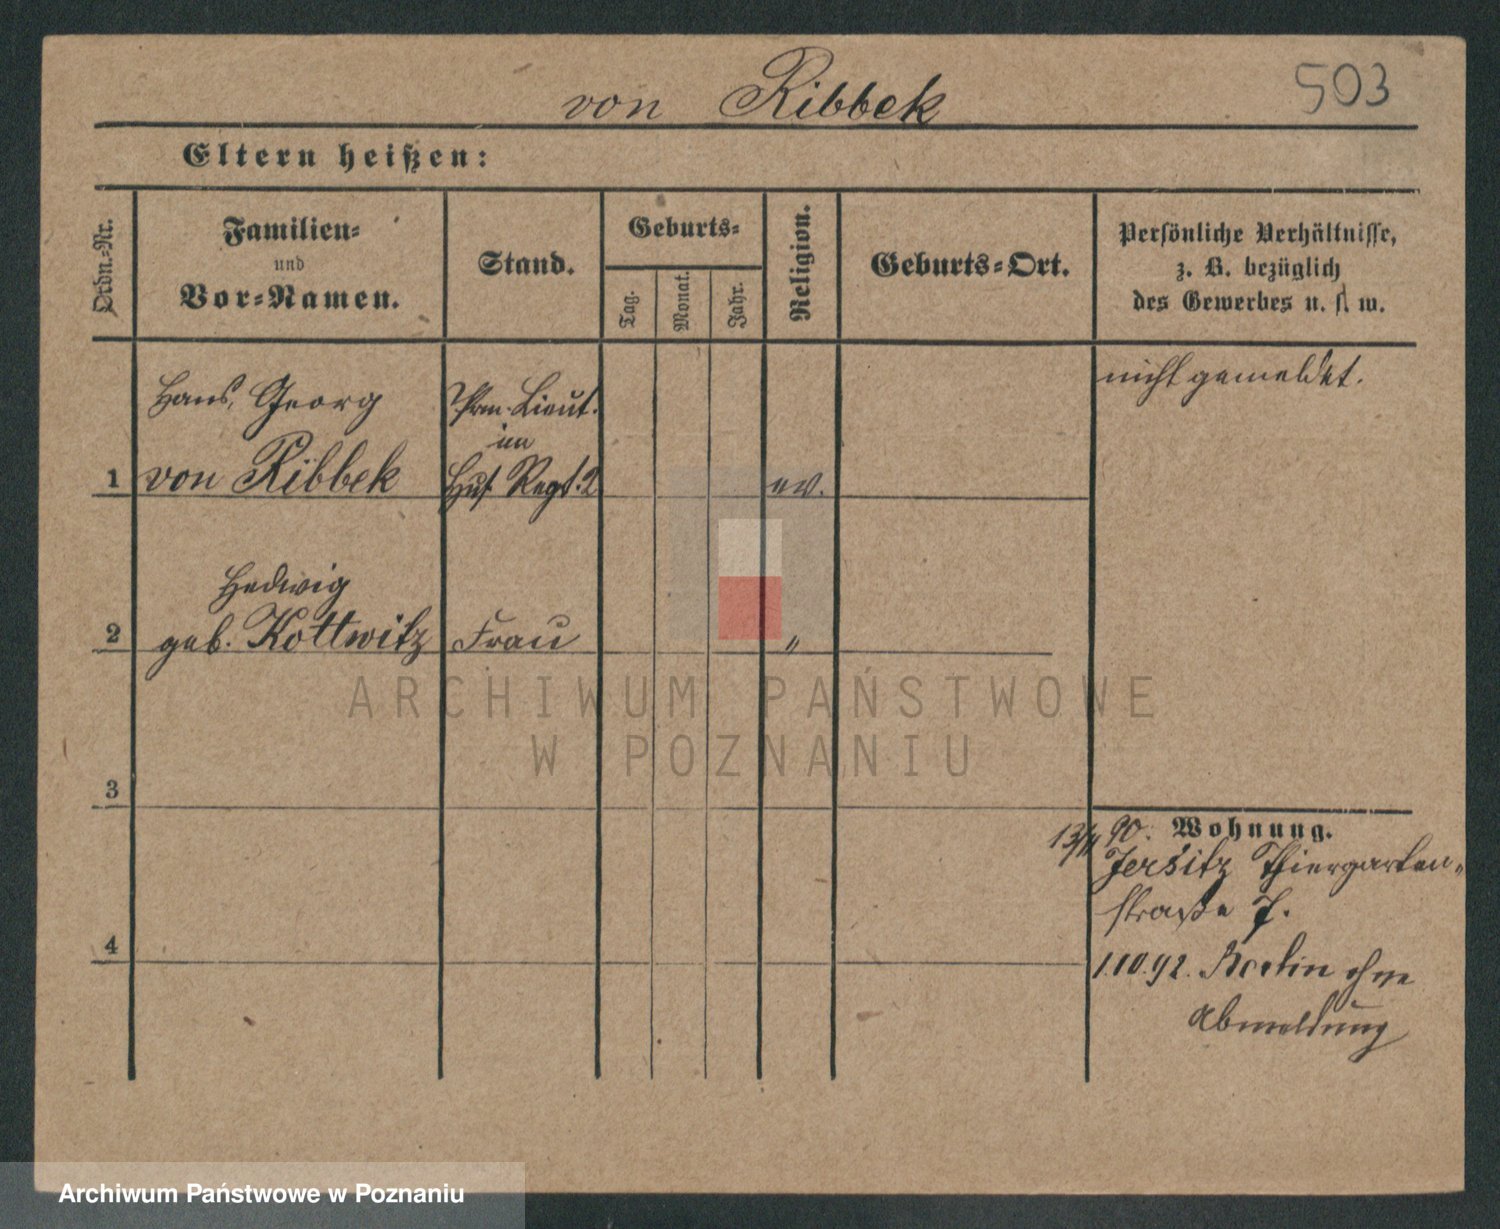 von Ribbek
503
Eltern heißen:
Ordn.-Nr.
Familien-
und
Vor-Namen.
Stand.
Geburts-
Tag.
Monat.
Jahr.
Religion.
Geburts-Ort.
Persönliche Verhältnisse,
z. B. bezüglich
des Gewerbes u. s. w.
nicht gemeldet.
Hans, Georg
Prm. Lieut.
im
1 von Ribbek Hus. Regt. 2 ev.
Hedwig
2 geb. Kottwitz Frau "
ARCHIWUM PAŃSTWOWE
W POZNANIU
3
13/11 90. Wohnung.
Jersitz Thiergarten-
straße 7.
4
1.10.92. Berlin ohne
Abmeldung
Archiwum Państwowe w Poznaniu